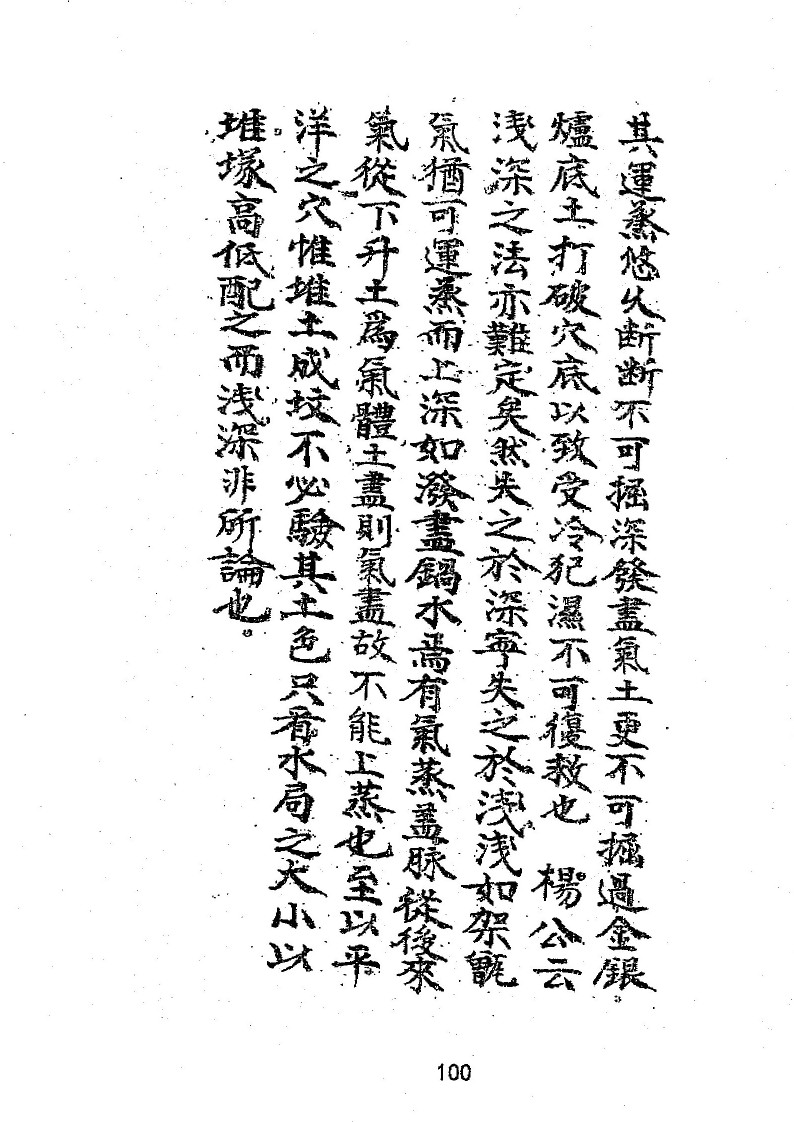 其運蒸悠久断断不可掘深發盡氣土更不可掘過金銀
爐底土打破穴底以致受冷犯濕不可復救也　楊公云
浅深之法亦難定矣然失之於深寧失之於浅浅如架甑
氣猶可運蒸而上深如潑盡鍋水焉有氣蒸盖脉從後來
氣從下升土爲氣體土盡則氣盡故不能上蒸也至以平
洋之穴惟堆土成坟不必驗其土色只看水局之大小以
堆塚高低配之而浅深非所論也。
100